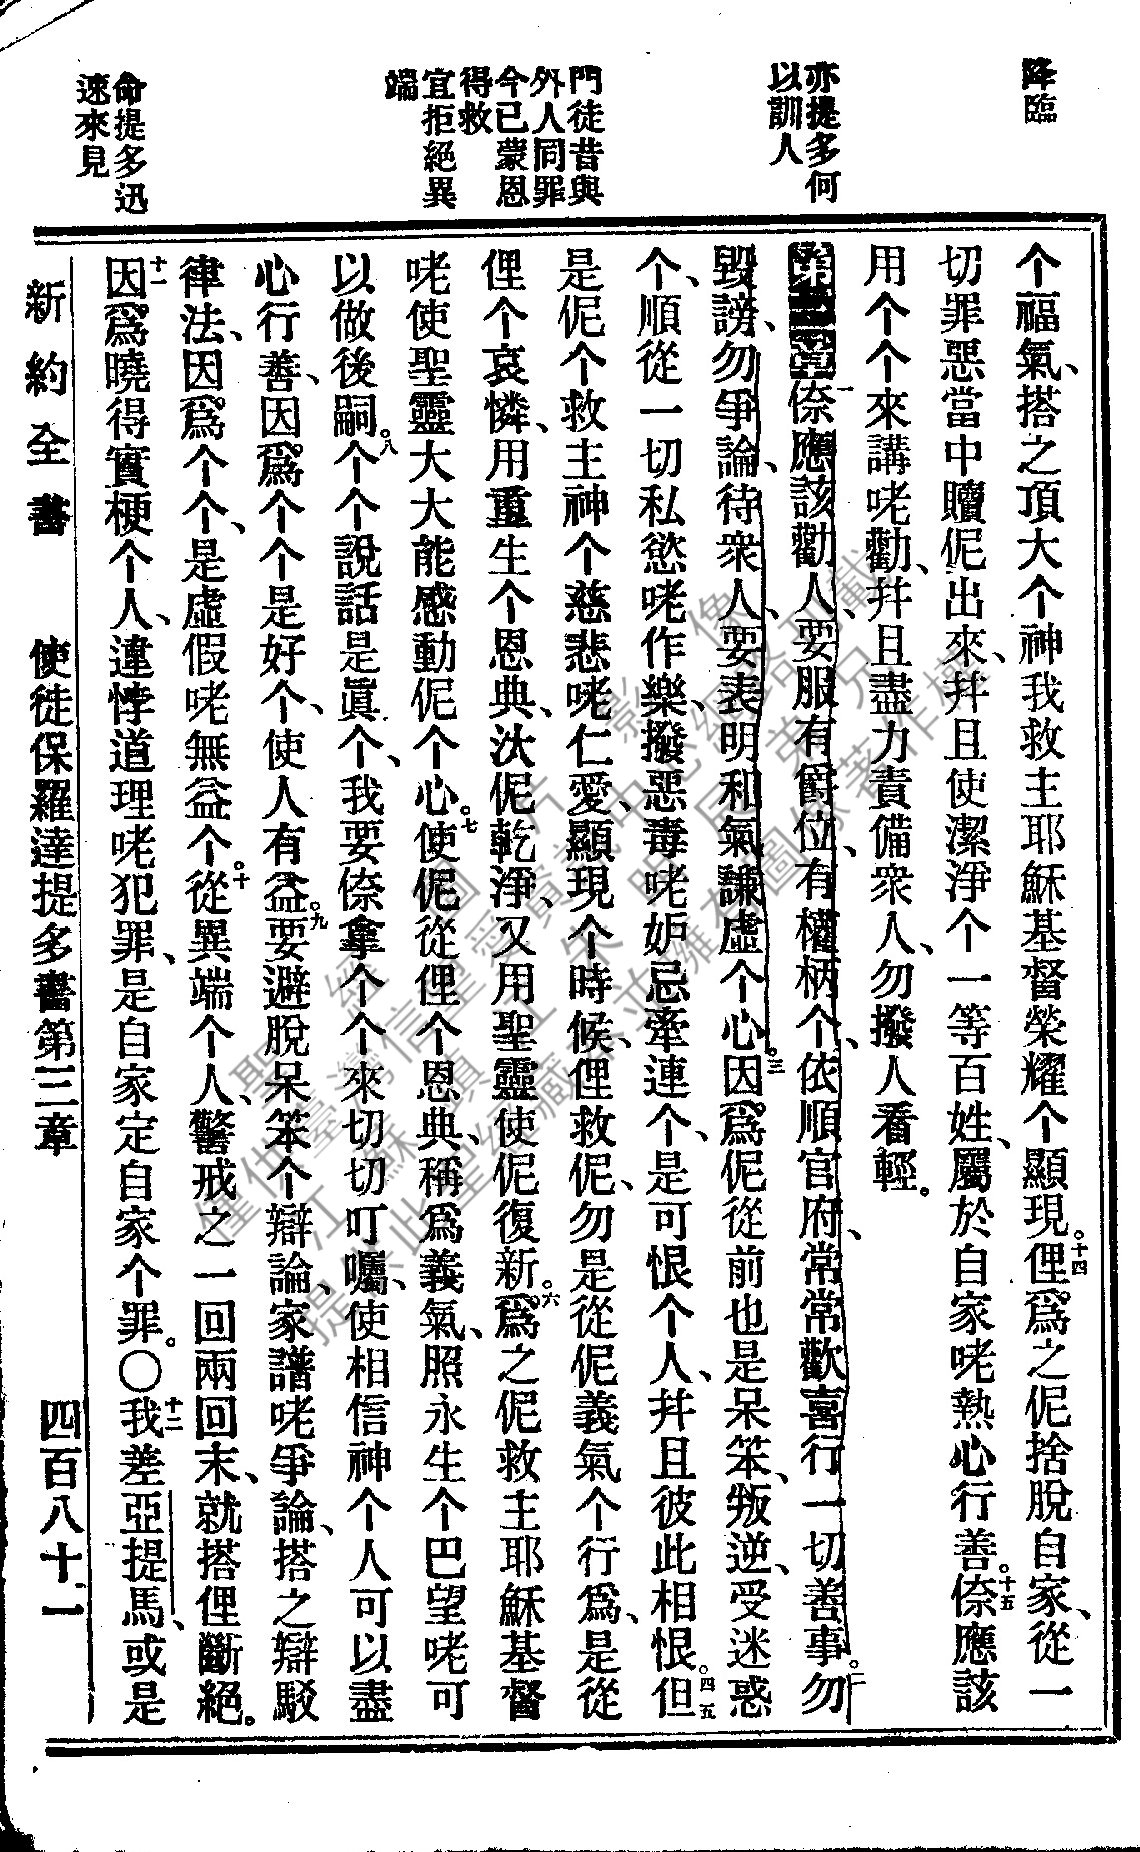 降臨
亦提多何
以訓人
門徒昔與
外人同罪
今已蒙恩
得救
宜拒絕異
端
命提多迅
速來見
个福氣、搭之頂大个神我救主耶穌基督榮耀个顯現。十四俚爲之伲捨脫自家、從一
切罪惡當中贖伲出來、幷且使潔淨个一等百姓、屬於自家咾熱心行善。十五倷應該
用个个來講咾勸、幷且盡力責備衆人、勿撥人看輕。
第三章一倷應該勸人、要服有爵位、有權柄个、依順官府、常常歡喜行一切善事。二勿
毀謗、勿爭論、待衆人、要表明和氣謙虛个心。三因爲伲從前也是呆笨、叛逆、受迷惑
个、順從一切私慾咾作樂、撥惡毒咾妒忌牽連个、是可恨个人、幷且彼此相恨。四五但
是伲个救主神个慈悲咾仁愛、顯現个時候、俚救伲、勿是從伲義氣个行爲、是從
俚个哀憐、用重生个恩典、汏伲乾淨、又用聖靈使伲復新。六爲之伲救主耶穌基督
咾使聖靈大大能感動伲个心。七使伲從俚个恩典、稱爲義氣、照永生个巴望咾可
以做後嗣。八个个說話是眞个、我要倷拿个个來切切叮囑、使相信神个人可以盡
心行善、因爲个个是好个、使人有益。九要避脫呆笨个辯論、家譜咾爭論、搭之辯駁
律法、因爲个个、是虛假咾無益个。十從異端个人、警戒之一回兩回末、就搭俚斷絕。
十一因爲曉得實梗个人、違悖道理咾犯罪、是自家定自家个罪。〇十二我差亞提馬、或是
新約全書　使徒保羅達提多書第三章　四百八十一
聖經圖片影像
僅供臺灣信望愛資訊中心網路刊載
江蘇鎮江朱明居弟兄
提供此聖經藏本並擁有圖像著作權